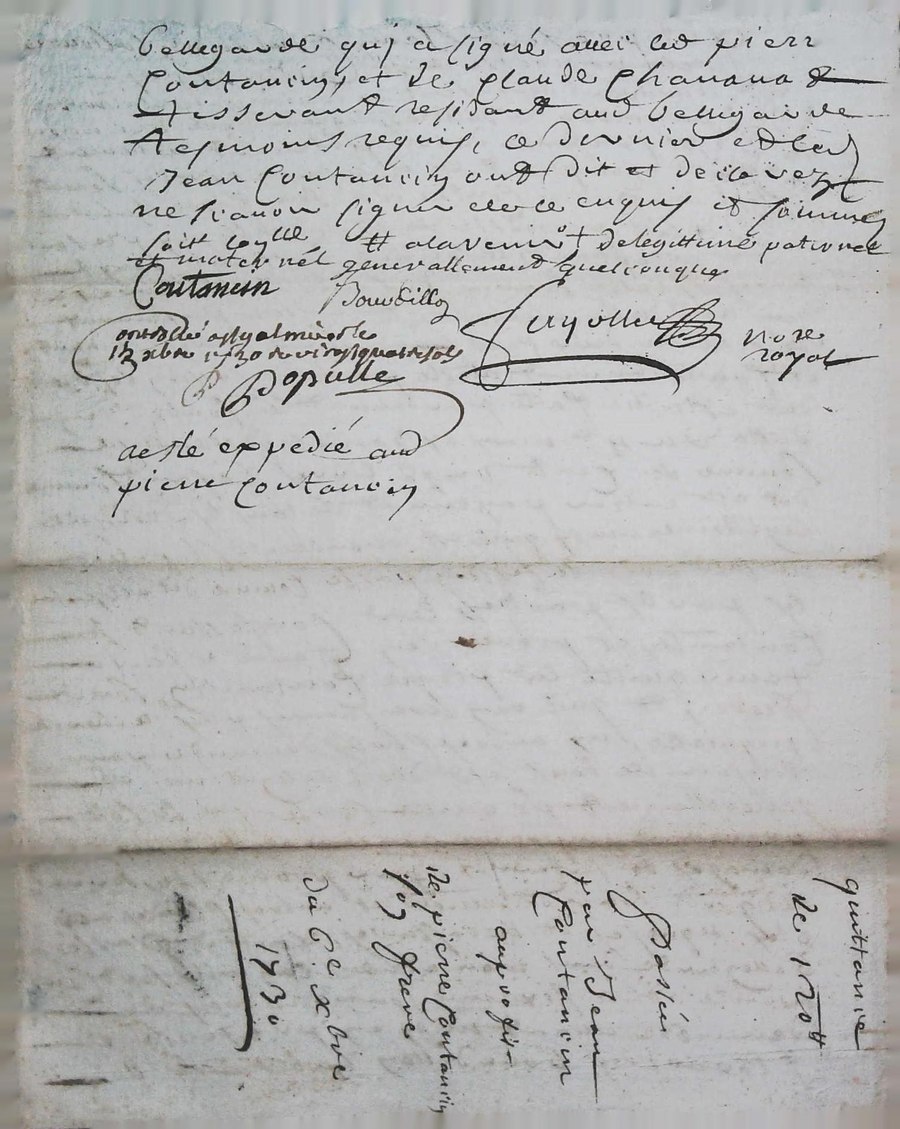 bellegarde qui a signé avec led pierr
Coutancin, et de claude Chavana
tisserand residant aud bellegarde
tesmoins requis, ce dernier et led
Jean Coutancin ont dit et declarez
ne scavoir signer de ce enquis et sommez
soitt # alavenir + delegittime paternel
et maternél generallement quelconque
Coutancin Bourdillo
controllé a
xbre 1730 vingt quatre sols
Populle
nore
royal
aesté expedié aud
pierre Coutancin
quittance
de 120tt
Passée
par Jean
Coutancin
auprofit
de pierre Coutancin
son frere
du 6e xbre
1730